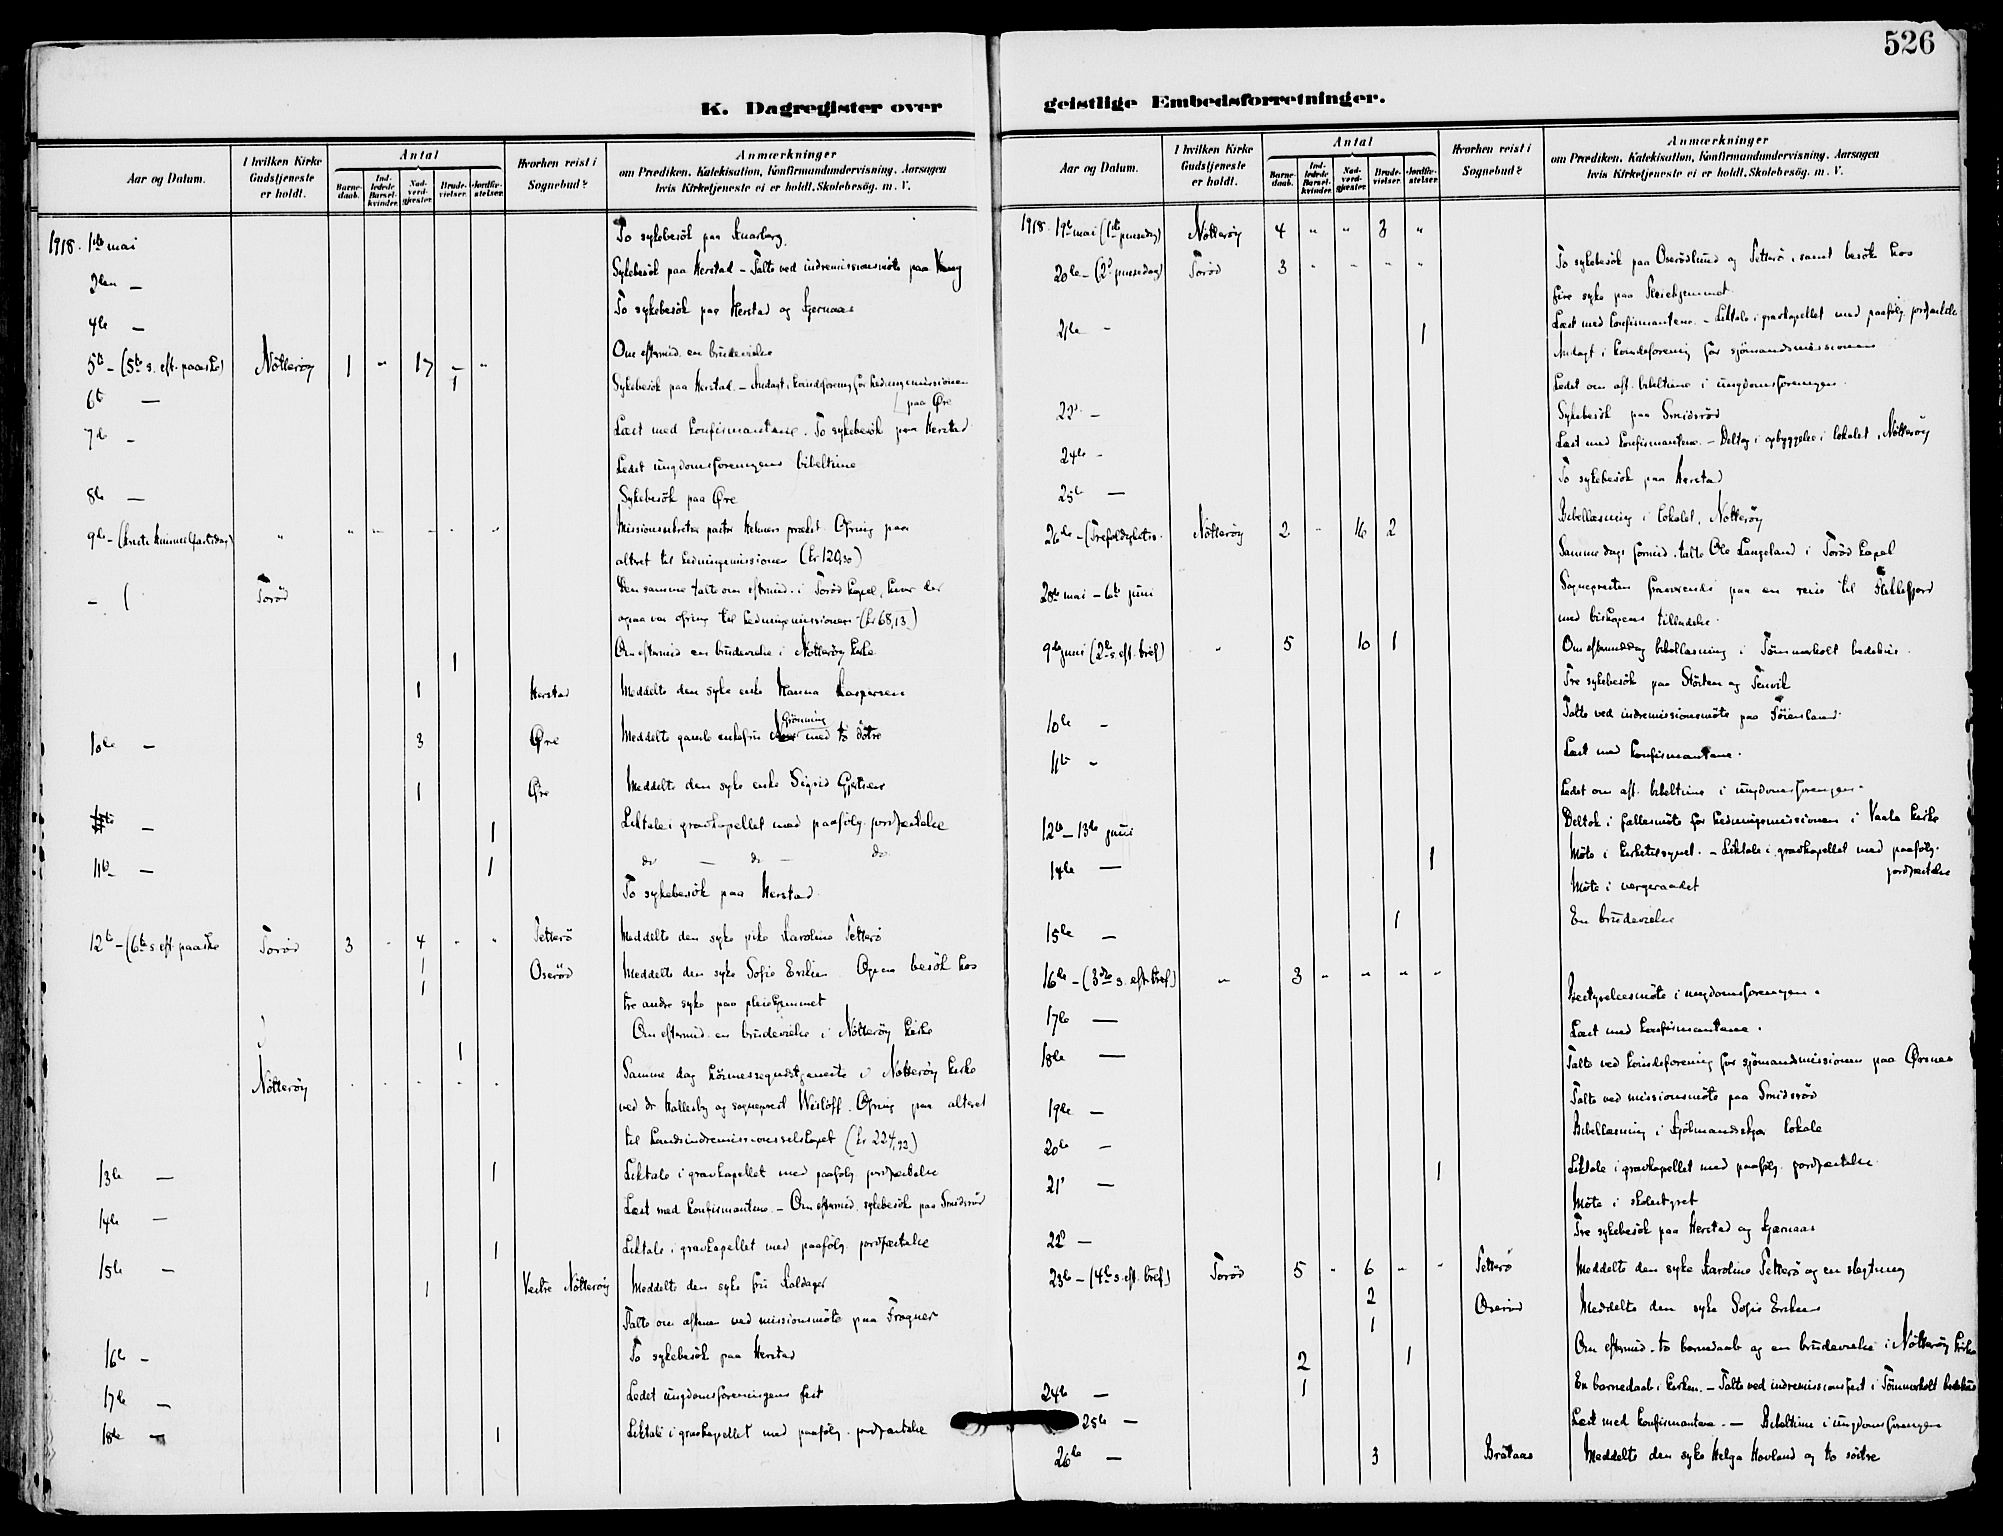 526
K. Dagregister over
geistlige Embedsforretninger.
Aar og Datum.
I hvilken Kirke Gudstjeneste er holdt.
Antal
Barne-daab.
Ind-ledede Barsel-kvinder.
Nad-verd-gjæster.
Brude-vielser.
Jordfæ-stelser.
Hvorhen reist i Sognebud?
Anmærkninger
om Prædiken, Katekisation, Konfirmandundervisning, Aarsagen
hvis Kirketjeneste ei er holdt, Skolebesög, m. V.
1918. 1ste mai To sykebesök paa
3den — Sykebesök paa Herstad – Talte ved indremissionsmöte paa
4de — To sykebesök paa Herstad og Kjærnaas
5te – (5te s. eft. paaske) Nötterøy 1 " 17 – "
1 Om eftermid. en brudevielse
6te — Sykebesök paa Herstad. – Andagt i kvindeforening for hedningemissionen
paa Øre
7de – Læst med konfirmantene. To sykebesök paa Herstad
Ledet ungdomsforeningens bibeltime
8de — Sykebesök paa Øre
9de – (Kristi Himmelfartsdag) " " " " " "
Missionssekretær pastor præket. Ofring paa
altret til hedningemissionen (kr 120,30)
Torød Den samme talte om eftermid. i Torød kapel, hvor der
ogsaa var ofring til hedningemissionen (kr 68,13)
1 Om eftermid en brudevielse i Nötterøy kirke
1 Herstad Meddelte den syke enke Hanna Kaspersen
10de — 3 Øre Meddelte gamle enkefru Grönning med to döttre
1 Øre Meddelte den syke enke Sigrid Gjertsen
— 1 Liktale i gravkapellet med paafölg. jordfæstelse
11te — 1 do — do — do
To sykebesök paa Herstad
12te – (6te s. eft. paaske Torød 3 " 4 " "
1 Tetterö Meddelte den syke pike Karoline Tetterö
1 Oseröd Meddelte den syke Sofie Eriksen. Ogsaa besök hos
tre andre syke paa pleiehjemmet
1 Om eftermid. en brudevielse i Nötterøy kirke
Nötterøy Samme dag höimessegudstjeneste i Nötterøy kirke
ved dr Hallesby og sogneprest Wisløff. Ofring paa alteret
til Landsindremissionsselskapet (kr 224,92)
13de — 1 Liktale i gravkapellet med paafölg. jordfæstelse
14de — Læst med konfirmantene. – Om eftermid. sykebesök paa Smidsröd
15de — 1 Liktale i gravkapellet med paafölg. jordfæstelse
1 Vestre Nötterøy Meddelte den syke fru Kaldager
Talte om aftenen ved missionsmöte paa Frogner
16de – To sykebesök paa Herstad
17de — Ledet ungdomsforeningens fest
18de — 1 Liktale i gravkapellet med paafölg. jordfæstelse
Aar og Datum.
I hvilken Kirke Gudstjeneste er holdt.
Antal
Barne-daab.
Ind-ledede Barsel-kvinder.
Nad-verd-gjæster.
Brude-vielser.
Jordfæ-stelser.
Hvorhen reist i Sognebud?
Anmærkninger
om Prædiken, Katekisation, Konfirmandundervisning, Aarsagen
hvis Kirketjeneste ei er holdt, Skolebesög, m. V.
1918. 19de mai (1ste pinsedag) Nötterøy 4 " " 3 "
20de – (2den pinsedag) Torød 3 " " " "
To sykebesök paa Oserödlund og Tetterö, samt besök hos
fire syke paa Pleiehjemmet
21de – 1 Læst med konfirmantene. – Liktale i gravkapellet med paafölg. jordfæstelse
Andagt i kvindeforening for sjömandsmissionen
Ledet om aft. bibeltime i ungdomsforeningen.
22de – Sykebesök paa Smidsröd
24de – Læst med konfirmantene. – Deltog i opbyggelse i lokalet, Nötterøy
25de — To sykebesök paa Herstad
Bibellæsning i lokalet, Nötterøy
26de – (Trefoldighets Nötterøy 2 " 16 2
Samme dags formid. talte Ole Langeland i Torød kapel
28de mai – 6te juni Sognepresten fraværende paa en reise til Flekkefjord
med biskopens tilladelse.
9de juni (2de s. eft. tref) " 5 10 1
Om eftermiddag bibellæsning i Tömmerholt bedehus.
Tre sykebesök paa Störten og Tenvik
10de – Talte ved indremissionsmöte paa Föienland.
11te – Læst med konfirmantene.
Ledet om aft. bibeltime i ungdomsforeningen.
12te – 13de juni Deltok i fællesmöte for hedningemissionen i Vaale kirke
14de — 1 Möte i kirketilsynet. – Liktale i gravkapellet med paafölg.
jordfæstelse
Möte i vergeraadet
15de — 1 En brudevielse
16de – (3dje s. eft. tref) " 3 " " " "
17de — Bestyrelsesmöte i ungdomsforeningen.
18de — Læst med konfirmantene.
Talte ved kvindeforening for sjömandsmissionen paa Ørsnes
19de — Talte ved missionsmöte paa Smidsröd
20de — Bibellæsning i lokale
21de — 1 Liktale i gravkapellet med paafölg. jordfæstelse
Möte i skolestyret
22de — Tre sykebesök paa Herstad og Kjærnaas
23de – (4de s. eft. tref) Torød 5 " 6 " "
2 Tetterö Meddelte den syke Karoline Tetterö og en slegtning
1 Oseröd Meddelte den syke Sofie Eriksen
2 1 Om eftermid. to barnedaab og en brudevielse i Nötterøy kirke
24de — 1 En barnedaab i kirken. – Talte ved indremissionsfest i Tömmerholt bedehus
25de — Læst med konfirmantene. — Bibeltime i ungdomsforeningen
26de — 3 Brataas Meddelte den syke Helga Hovland og to söstre